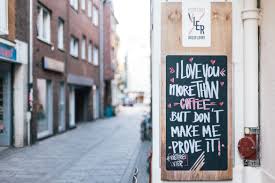 VIER
I LOVE YOU
MORE THAN
COFFEE
BUT DON'T
MAKE ME
PROVE IT!